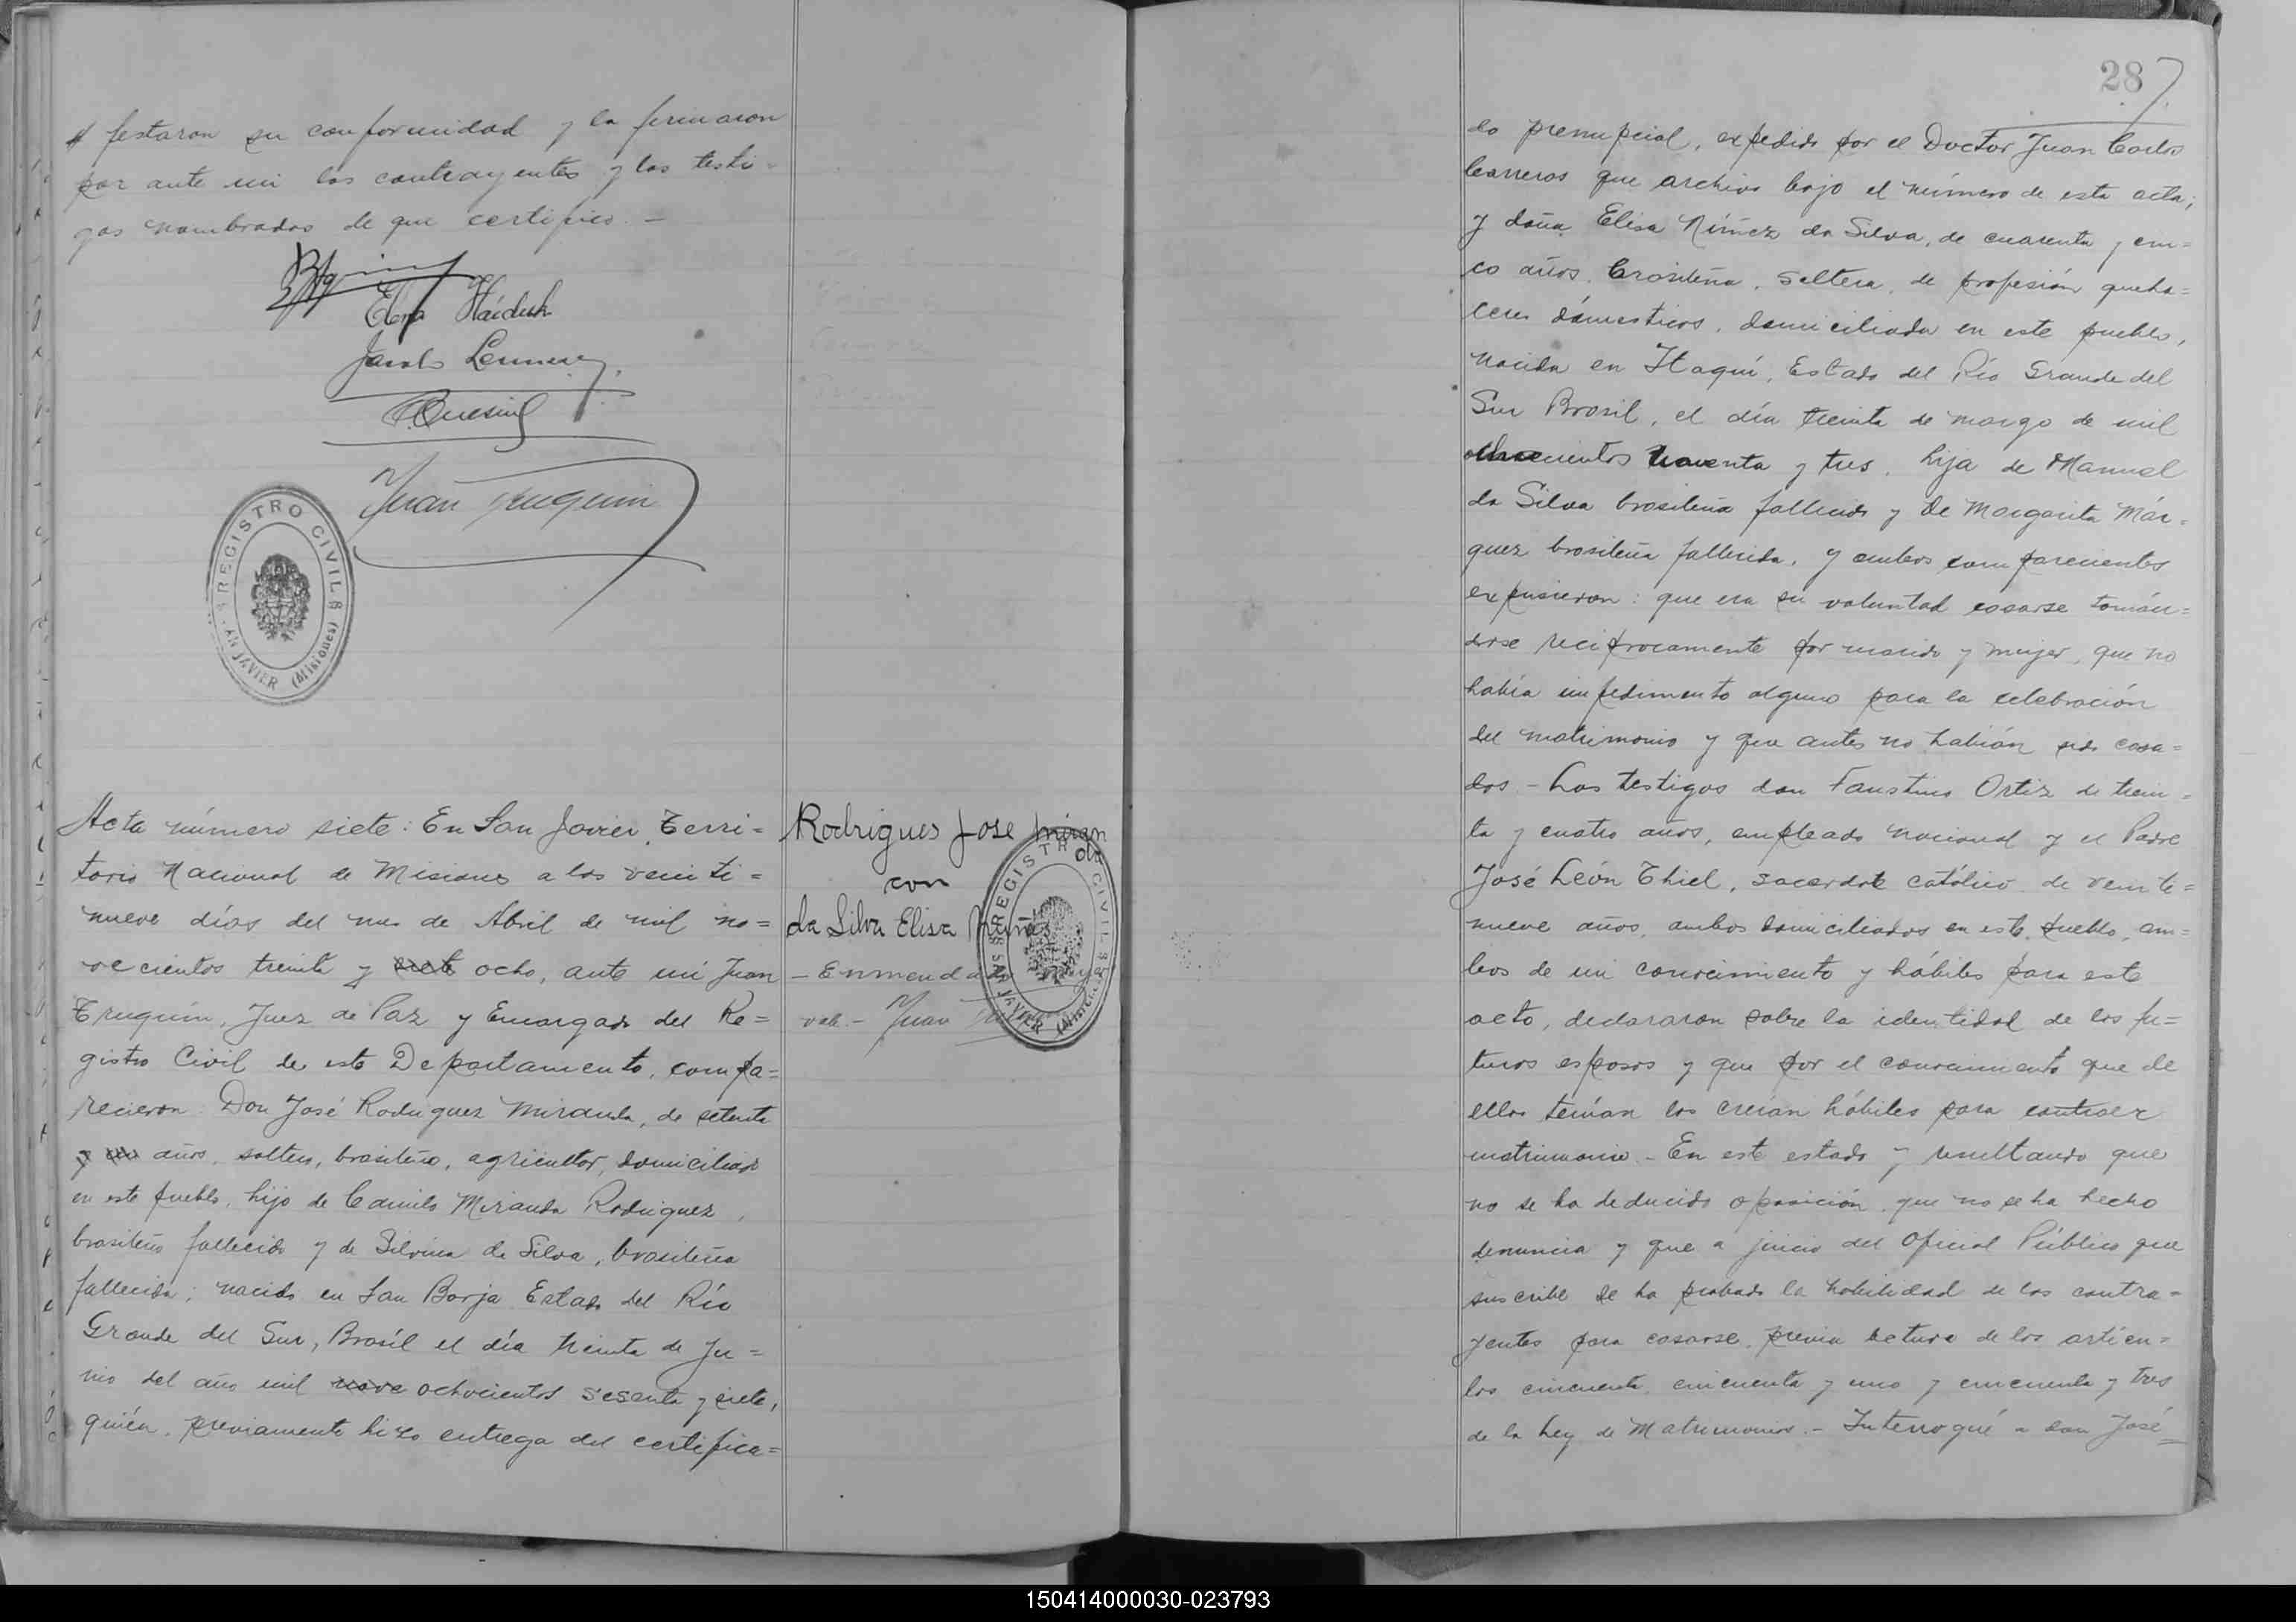 festaron su conformidad y la firmaron
por ante mi los contrayentes y los testi-
gos nombrados de que certifico.-
Elena Haiduk
Juan Truquin
REGISTRO CIVIL
SAN JAVIER (Misiones)
Acta número siete: En San Javier, Terri=
torio Nacional de Misiones a los veinti=
nueve días del mes de Abril de mil no=
vecientos treinta y siete ocho, ante mi Juan
Truquin, Juez de Paz y Encargado del Re=
gistro Civil de este Departamento, compa=
recieron Don José Rodriguez Miranda, de setenta
y un años, soltero, brasileño, agricultor, domiciliado
en este pueblo, hijo de Camilo Miranda Rodriguez,
brasileño fallecido y de Silvina da Silva, brasileña
fallecida; nacido en San Borja Estado del Río
Grande del Sur, Brasil el día treinta de Ju=
nio del año mil nove ochocientos sesenta y siete,
quién, previamente hizo entrega del certifica=
Rodrigues Jose Miranda
con
da Silva Elisa
- Enmendado
vale.- Juan
REGISTRO CIVIL
SAN JAVIER (Misiones)
287
do prenupcial, expedido por el Doctor Juan Carlos
Carreras que archivo bajo el número de esta acta;
y doña Elisa Núñez da Silva, de cuarenta y cin=
co años, brasileña, soltera, de profesión queha=
ceres domésticos, domiciliada en este pueblo,
nacida en Itaquí, Estado del Río Grande del
Sur Brasil, el día treinta de marzo de mil
ochocientos noventa y tres, hija de Manuel
da Silva brasileño fallecido y de Margarita Már=
quez brasileña fallecida, y ambos comparecientes
expusieron: que era su voluntad casarse tomán=
dose recíprocamente por marido y mujer, que no
había impedimento alguno para la celebración
del matrimonio y que antes no habían sido casa=
dos.- Los testigos don Faustino Ortiz de trein=
ta y cuatro años, empleado nacional y el Padre
José León Thiel, sacerdote católico de veinti=
nueve años, ambos domiciliados en este pueblo, am=
bos de mi conocimiento y hábiles para este
acto, declararon sobre la identidad de los fu=
turos esposos y que por el conocimiento que de
ellos tenían los creían hábiles para contraer
matrimonio.- En este estado y resultando que
no se ha deducido oposición, que no se ha hecho
denuncia y que a juicio del Oficial Público que
suscribe se ha probado la habilidad de los contra=
yentes para casarse, previa lectura de los artícu=
los cincuenta, cincuenta y uno y cincuenta y tres
de la Ley de Matrimonios.- Interrogué a don José
150414000030-023793